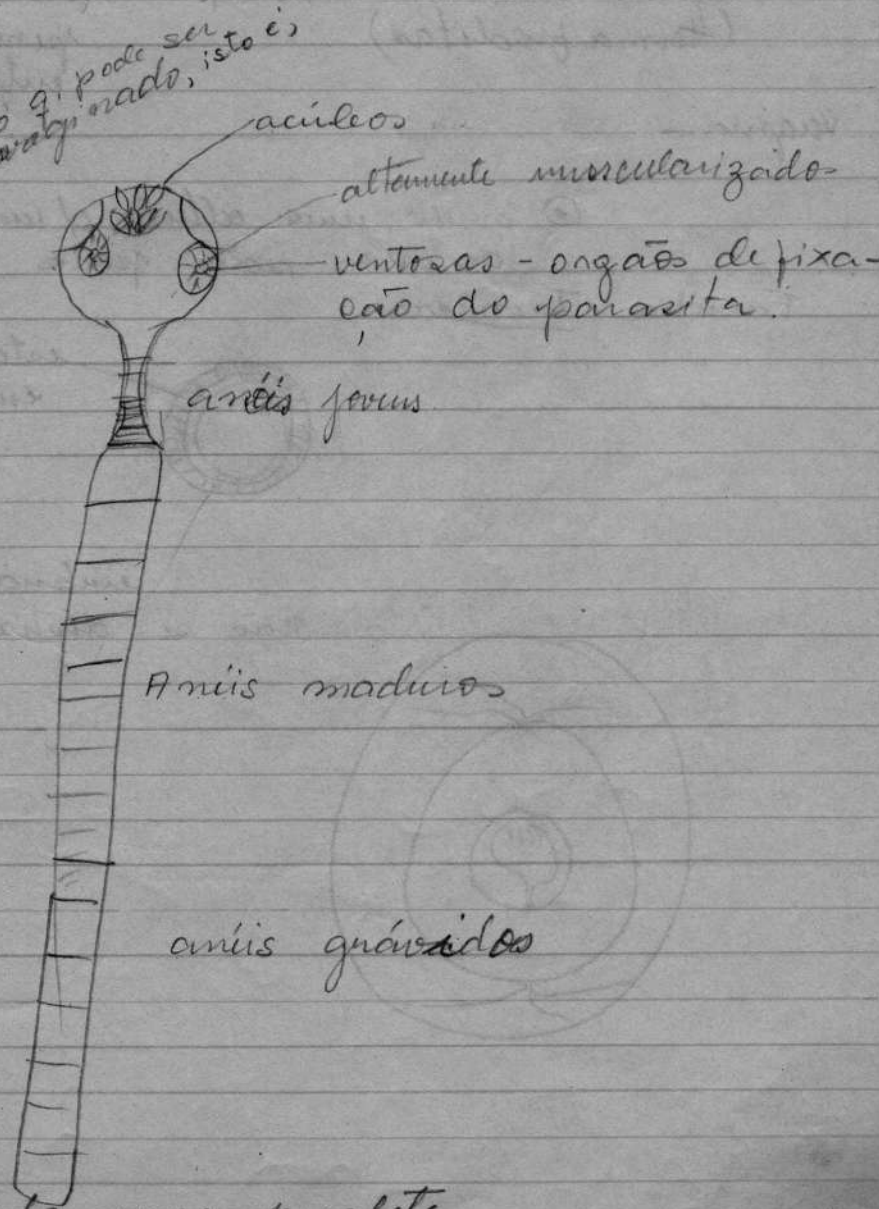 q. pode ser
isto é,
acúleos
altamente muscularizado
ventosas - orgãos de fixa-
ção do parasita.
anéis jovens
Anéis maduros
anéis grávidos